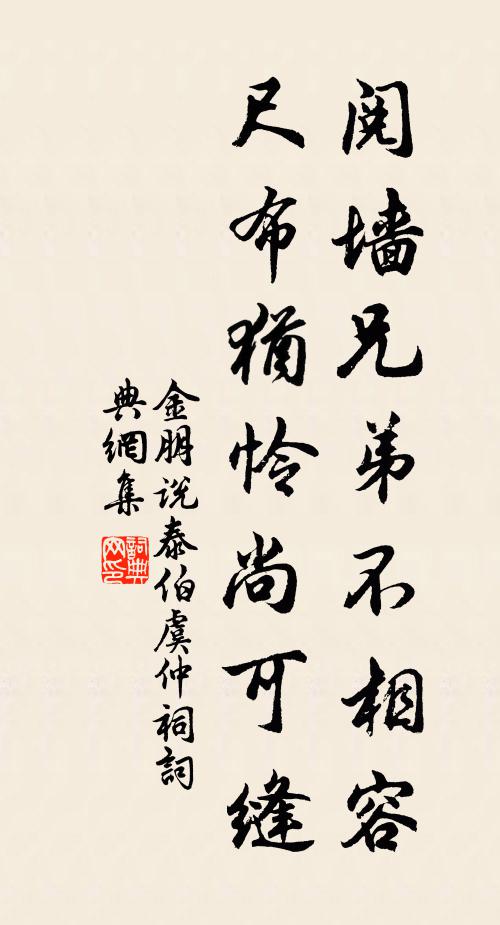 阅墙兄弟不相容
尺布猶怜尚可縫
金朋说泰伯虞仲祠詞
典網集
詞典网印